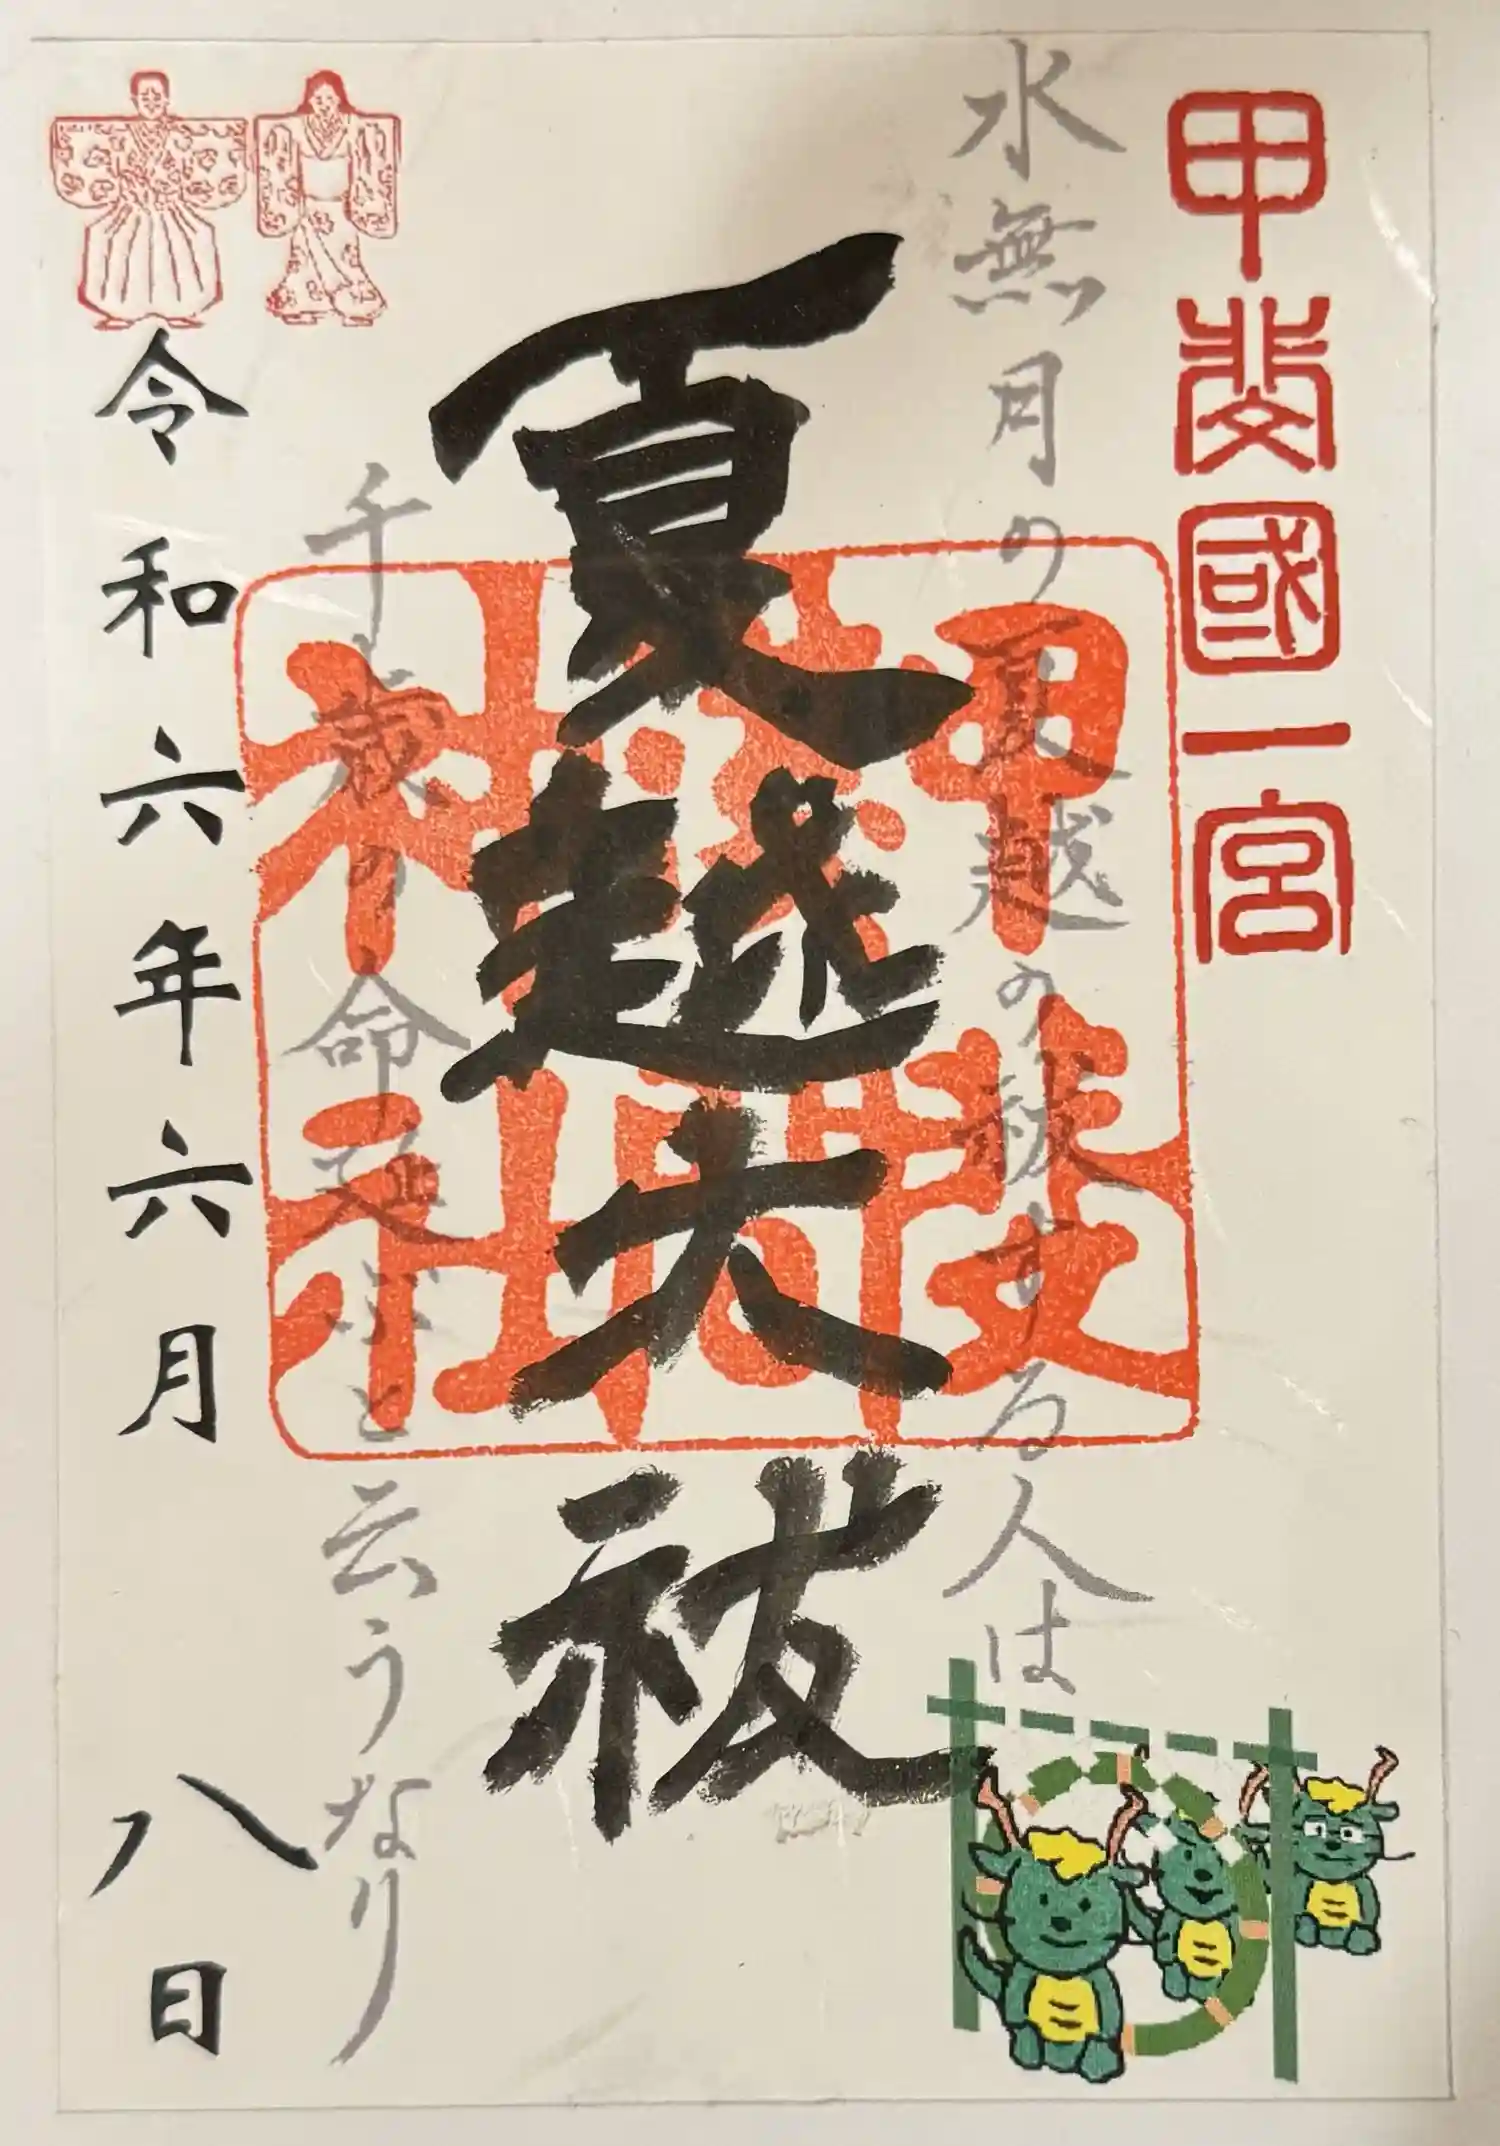 甲斐國一宮
水無月の夏越の祓する人は
夏越大祓
甲斐
淺間
神社
千歳の命延ぶと云うなり
令和六年六月八日